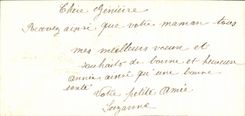 Chère Génière
Recevez ainsi que votre maman tous
mes meilleurs vœux et
souhaits de bonne et heureuse
année ainsi qu'une bonne
santé
Votre petite amie
Suzanne